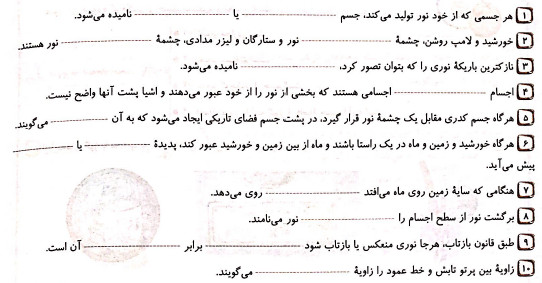 ۱ هر جسمی که از خود نور تولید می‌کند، جسم ............ یا ............ نامیده می‌شود.
۲ خورشید و لامپ روشن، چشمهٔ ............ نور و ستارگان و لیزر مدادی، چشمهٔ ............ نور هستند.
۳ نازکترین باریکهٔ نوری را که بتوان تصور کرد، ............ نامیده می‌شود.
۴ اجسام ............ اجسامی هستند که بخشی از نور را از خود عبور می‌دهند و اشیا پشت آنها واضح نیست.
۵ هرگاه جسم کدری مقابل یک چشمهٔ نور قرار گیرد، در پشت جسم فضای تاریکی ایجاد می‌شود که به آن ............ می‌گویند.
۶ هرگاه خورشید و زمین و ماه در یک راستا باشند و ماه از بین زمین و خورشید عبور کند، پدیدهٔ ............ یا ............
پیش می‌آید.
۷ هنگامی که سایهٔ زمین روی ماه می‌افتد ............ روی می‌دهد.
۸ برگشت نور از سطح اجسام را ............ نور می‌نامند.
۹ طبق قانون بازتاب، هرجا نوری منعکس یا بازتاب شود ............ برابر ............ آن است.
۱۰ زاویهٔ بین پرتو تابش و خط عمود را زاویهٔ ............ می‌گویند.